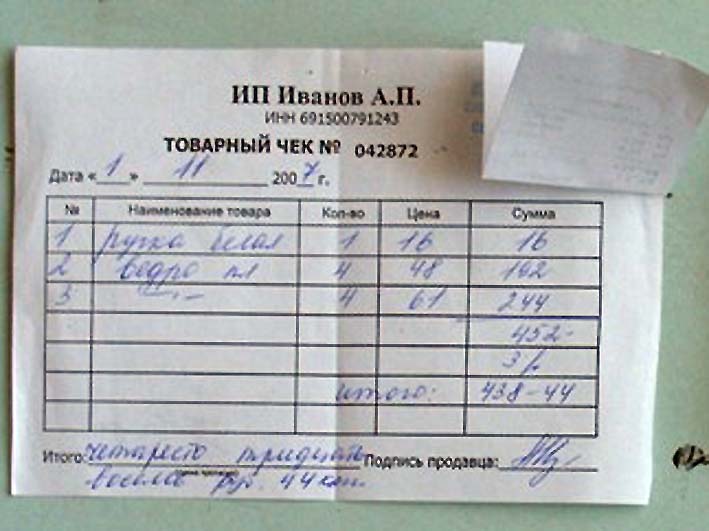 ИП Иванов А.П.
ИНН 691500791243
ТОВАРНЫЙ ЧЕК № 042872
Дата «1» 11 2007 г.
№ Наименование товара Кол-во Цена Сумма
1 ручка белая 1 16 16
2 ведро пл 4 48 192
3 —"— 4 61 244
452-
3%
итого: 438-44
Итого: четыресто тридцать Подпись продавца:
восемь руб. 44 коп.